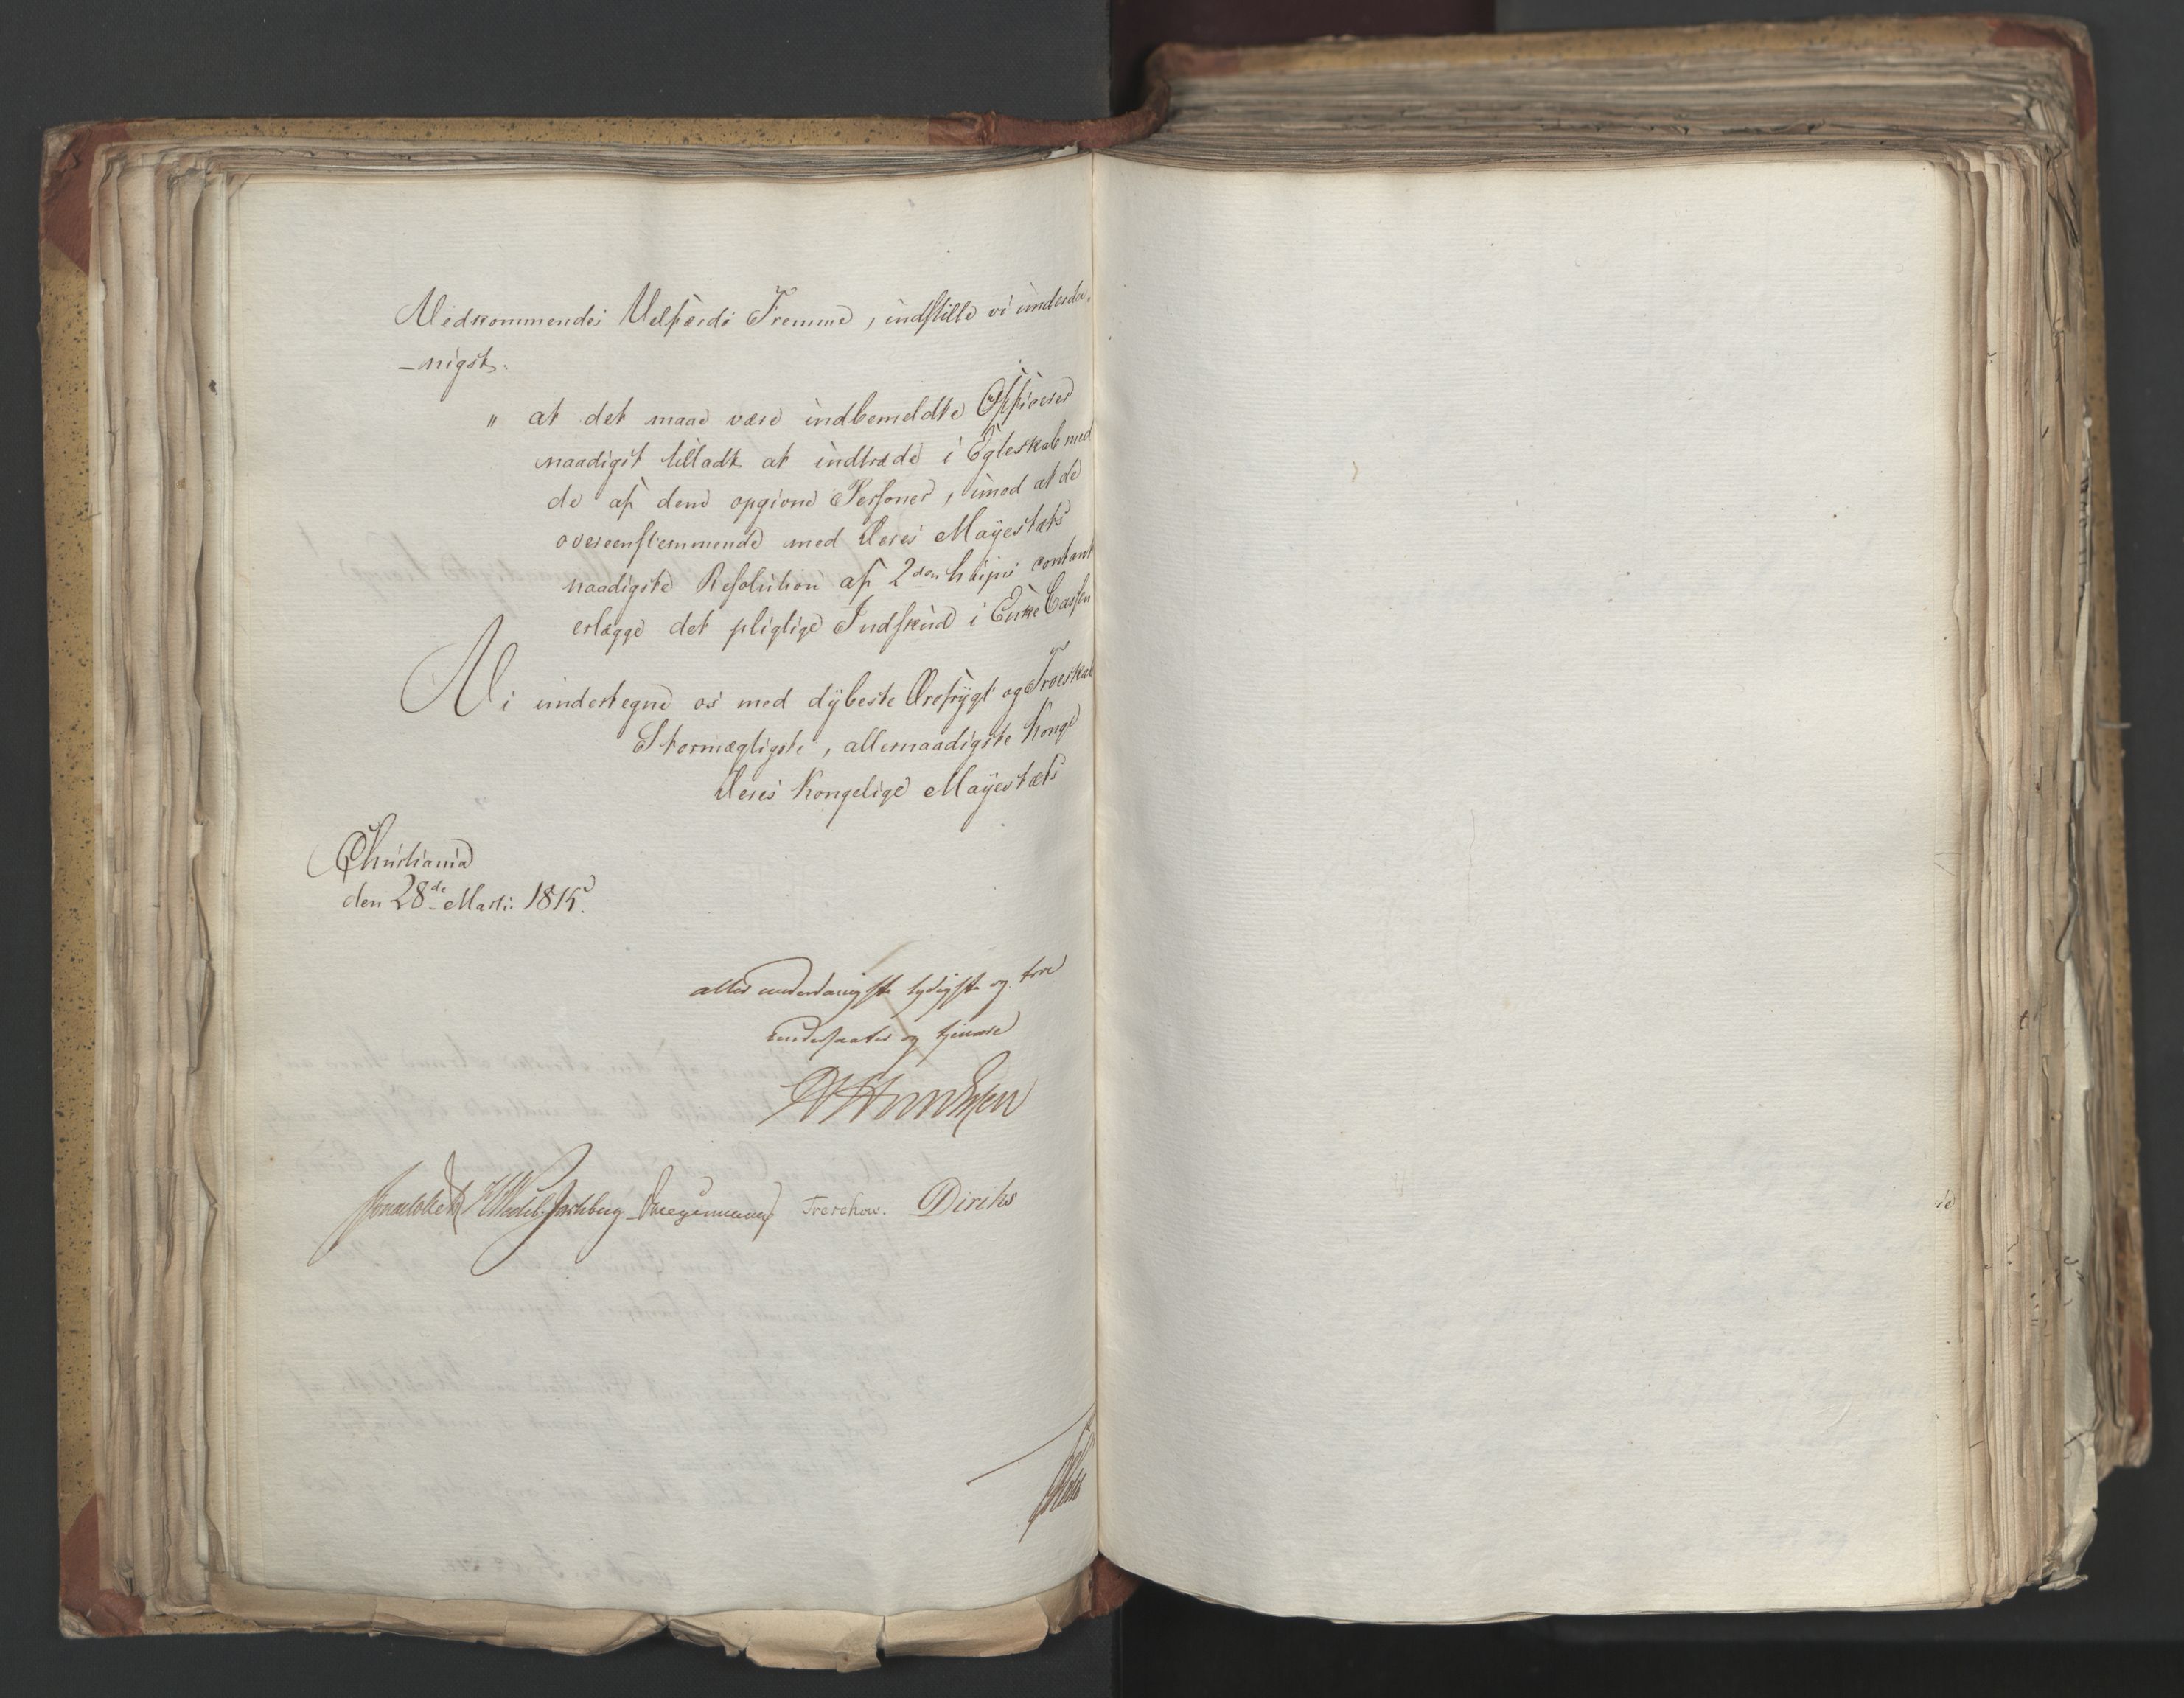 Vedkommendes Velfærds Fremme, indstille vi underda-
-nigst:
" at det maae være indbemeldte Officerer
naadigst tilladt at indtræde i Egteskab med
de af dem opgivne Personer, imod at de
overeenstemmende med Deres Mayestæts
naadigste Resolution af 2den hujus contant
erlægge det pligtige Indskud i Enke Cassen
Vi undertegne os med dybeste Ærefrygt og Troeskab
Stormægtigste, allernaadigste Konge
Deres Kongelige Mayestæts
Christiania
den 28de Marti: 1815.
aller underdanigste lydigste og troe
undersaatter og tjenere
Sommerfeldt HWedel-Jarlsberg Krogemann Treschow. Diriks